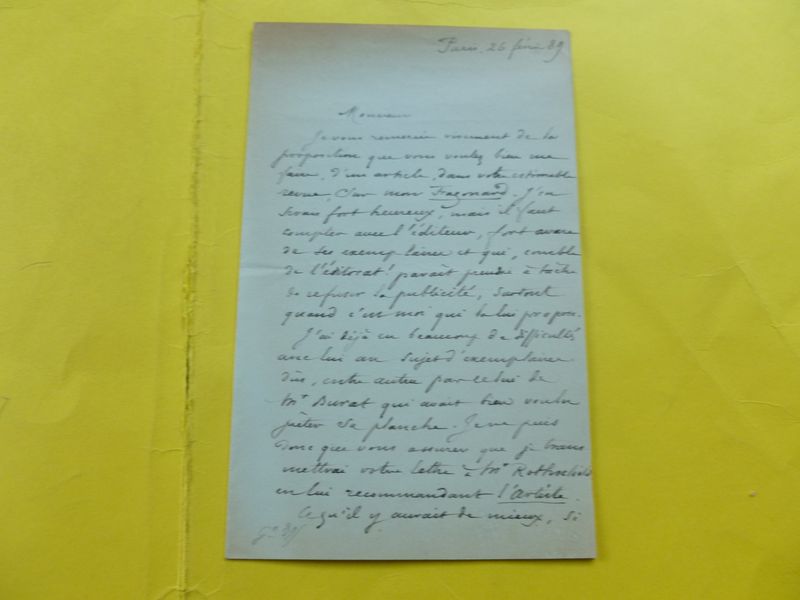 Paris. 26 févr. 89
Monsieur
Je vous remercie vivement de la
proposition que vous voulez bien me
faire, d'un article, dans votre estimable
revue, sur mon Fragonard. J'en
serais fort heureux, mais il faut
compter avec l'éditeur, fort avare
de ses exemplaires et qui, comble
de l'éditorat! parait prendre à tâche
de refuser la publicité, surtout
quand c'est moi qui la lui propose.
J'ai déjà eu beaucoup de difficultés
avec lui au sujet d'exemplaires
dûs, entre autres par celui de
Mr Burat qui avait bien voulu
prêter sa planche. Je ne puis
donc que vous assurer que je trans
mettrai votre lettre à Mr Rothschild
en lui recommandant l'artiste.
Ce qu'il y aurait de mieux, si